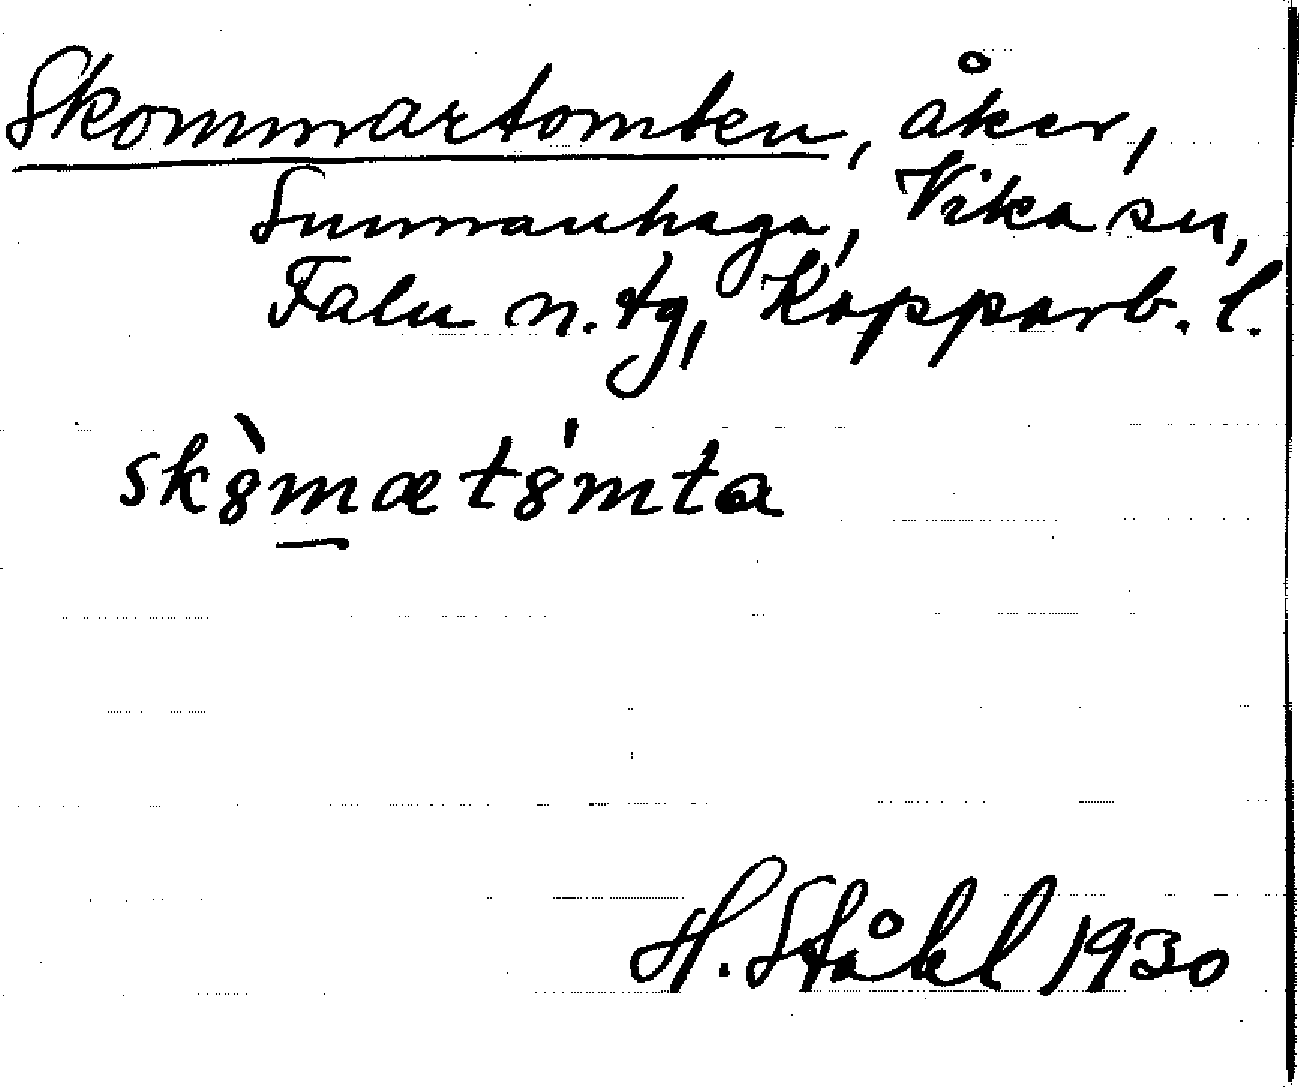 Skommartomten, åker,
Sunnanhaga, Vika sn,
Falu n. tg, Kopparb. l.
sk8̀mæt8́mta
H. Ståhl 1930